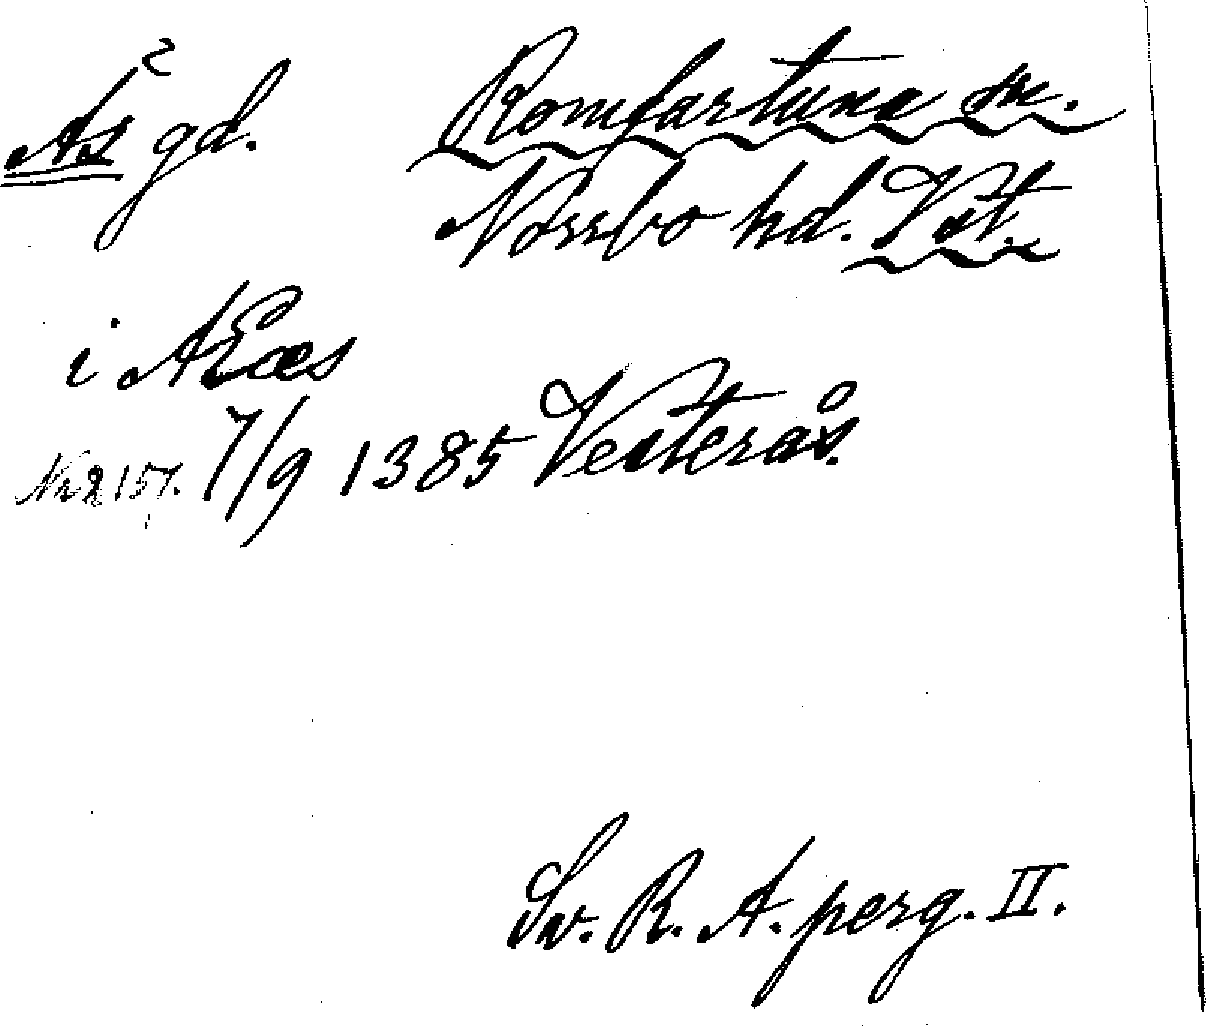 Ås gd. Romfartuna sn.
Norrbo hd. Vst.
i AEaes
Nr 2157. 7/9 1385 Vesterås.
Sv. R. A. perg. II.